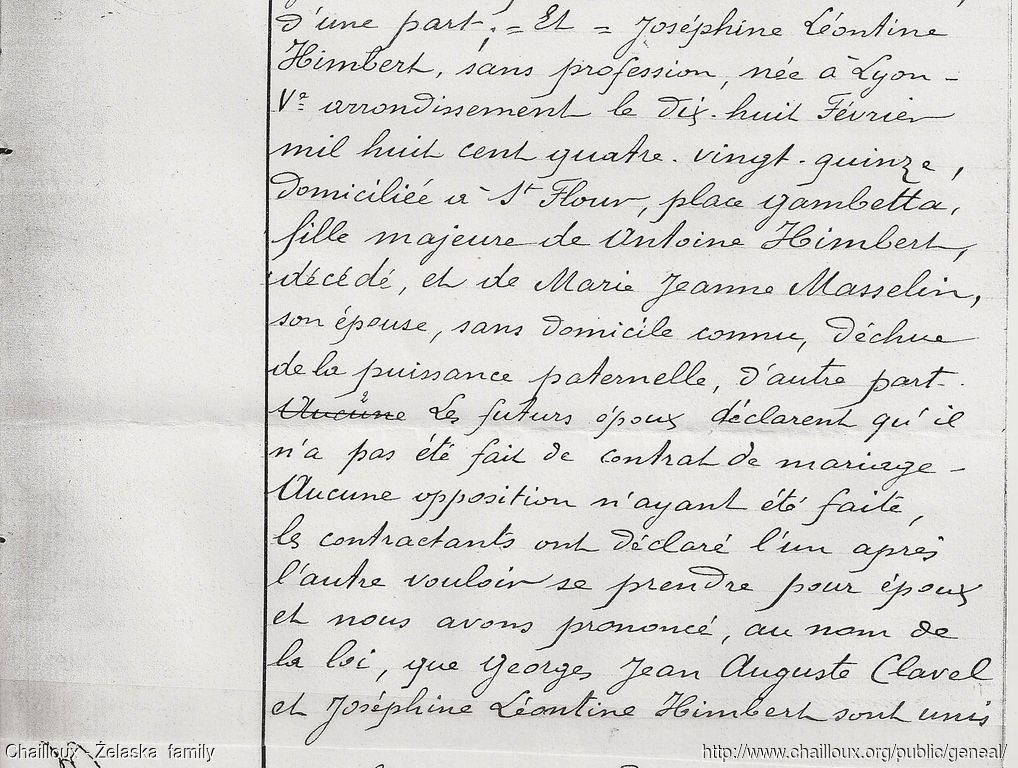 d'une part. = Et = Joséphine Léontine
Himbert, sans profession, née à Lyon -
Ve arrondissement le dix-huit Février
mil huit cent quatre-vingt-quinze,
domiciliée à St Flour, place Gambetta,
fille majeure de Antoine Himbert,
décédé, et de Marie Jeanne Masselin,
son épouse, sans domicile connu, déchue
de la puissance paternelle, d'autre part.
Aucune Les futurs époux déclarent qu'il
n'a pas été fait de contrat de mariage -
Aucune opposition n'ayant été faite,
les contractants ont déclaré l'un après
l'autre vouloir se prendre pour époux
et nous avons prononcé, au nom de
la loi, que Georges Jean Auguste Clavel
et Joséphine Léontine Himbert sont unis
Chailloux - Żelaska family
http://www.chailloux.org/public/geneal/